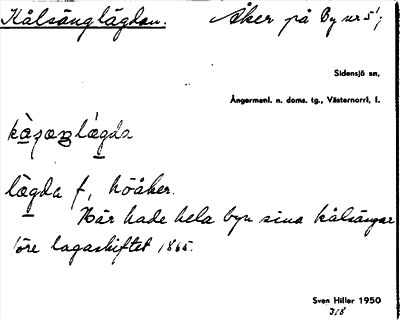 Kålsänglägdan.
Åker på By nr 5¹;
Sidensjö sn,
Ångermanl. n. doms. tg., Västernorrl. l.
lägda f, höåker.
Här hade hela byn sina kålsängar
före lagaskiftet 1865.
Sven Hiller 1950
3/8